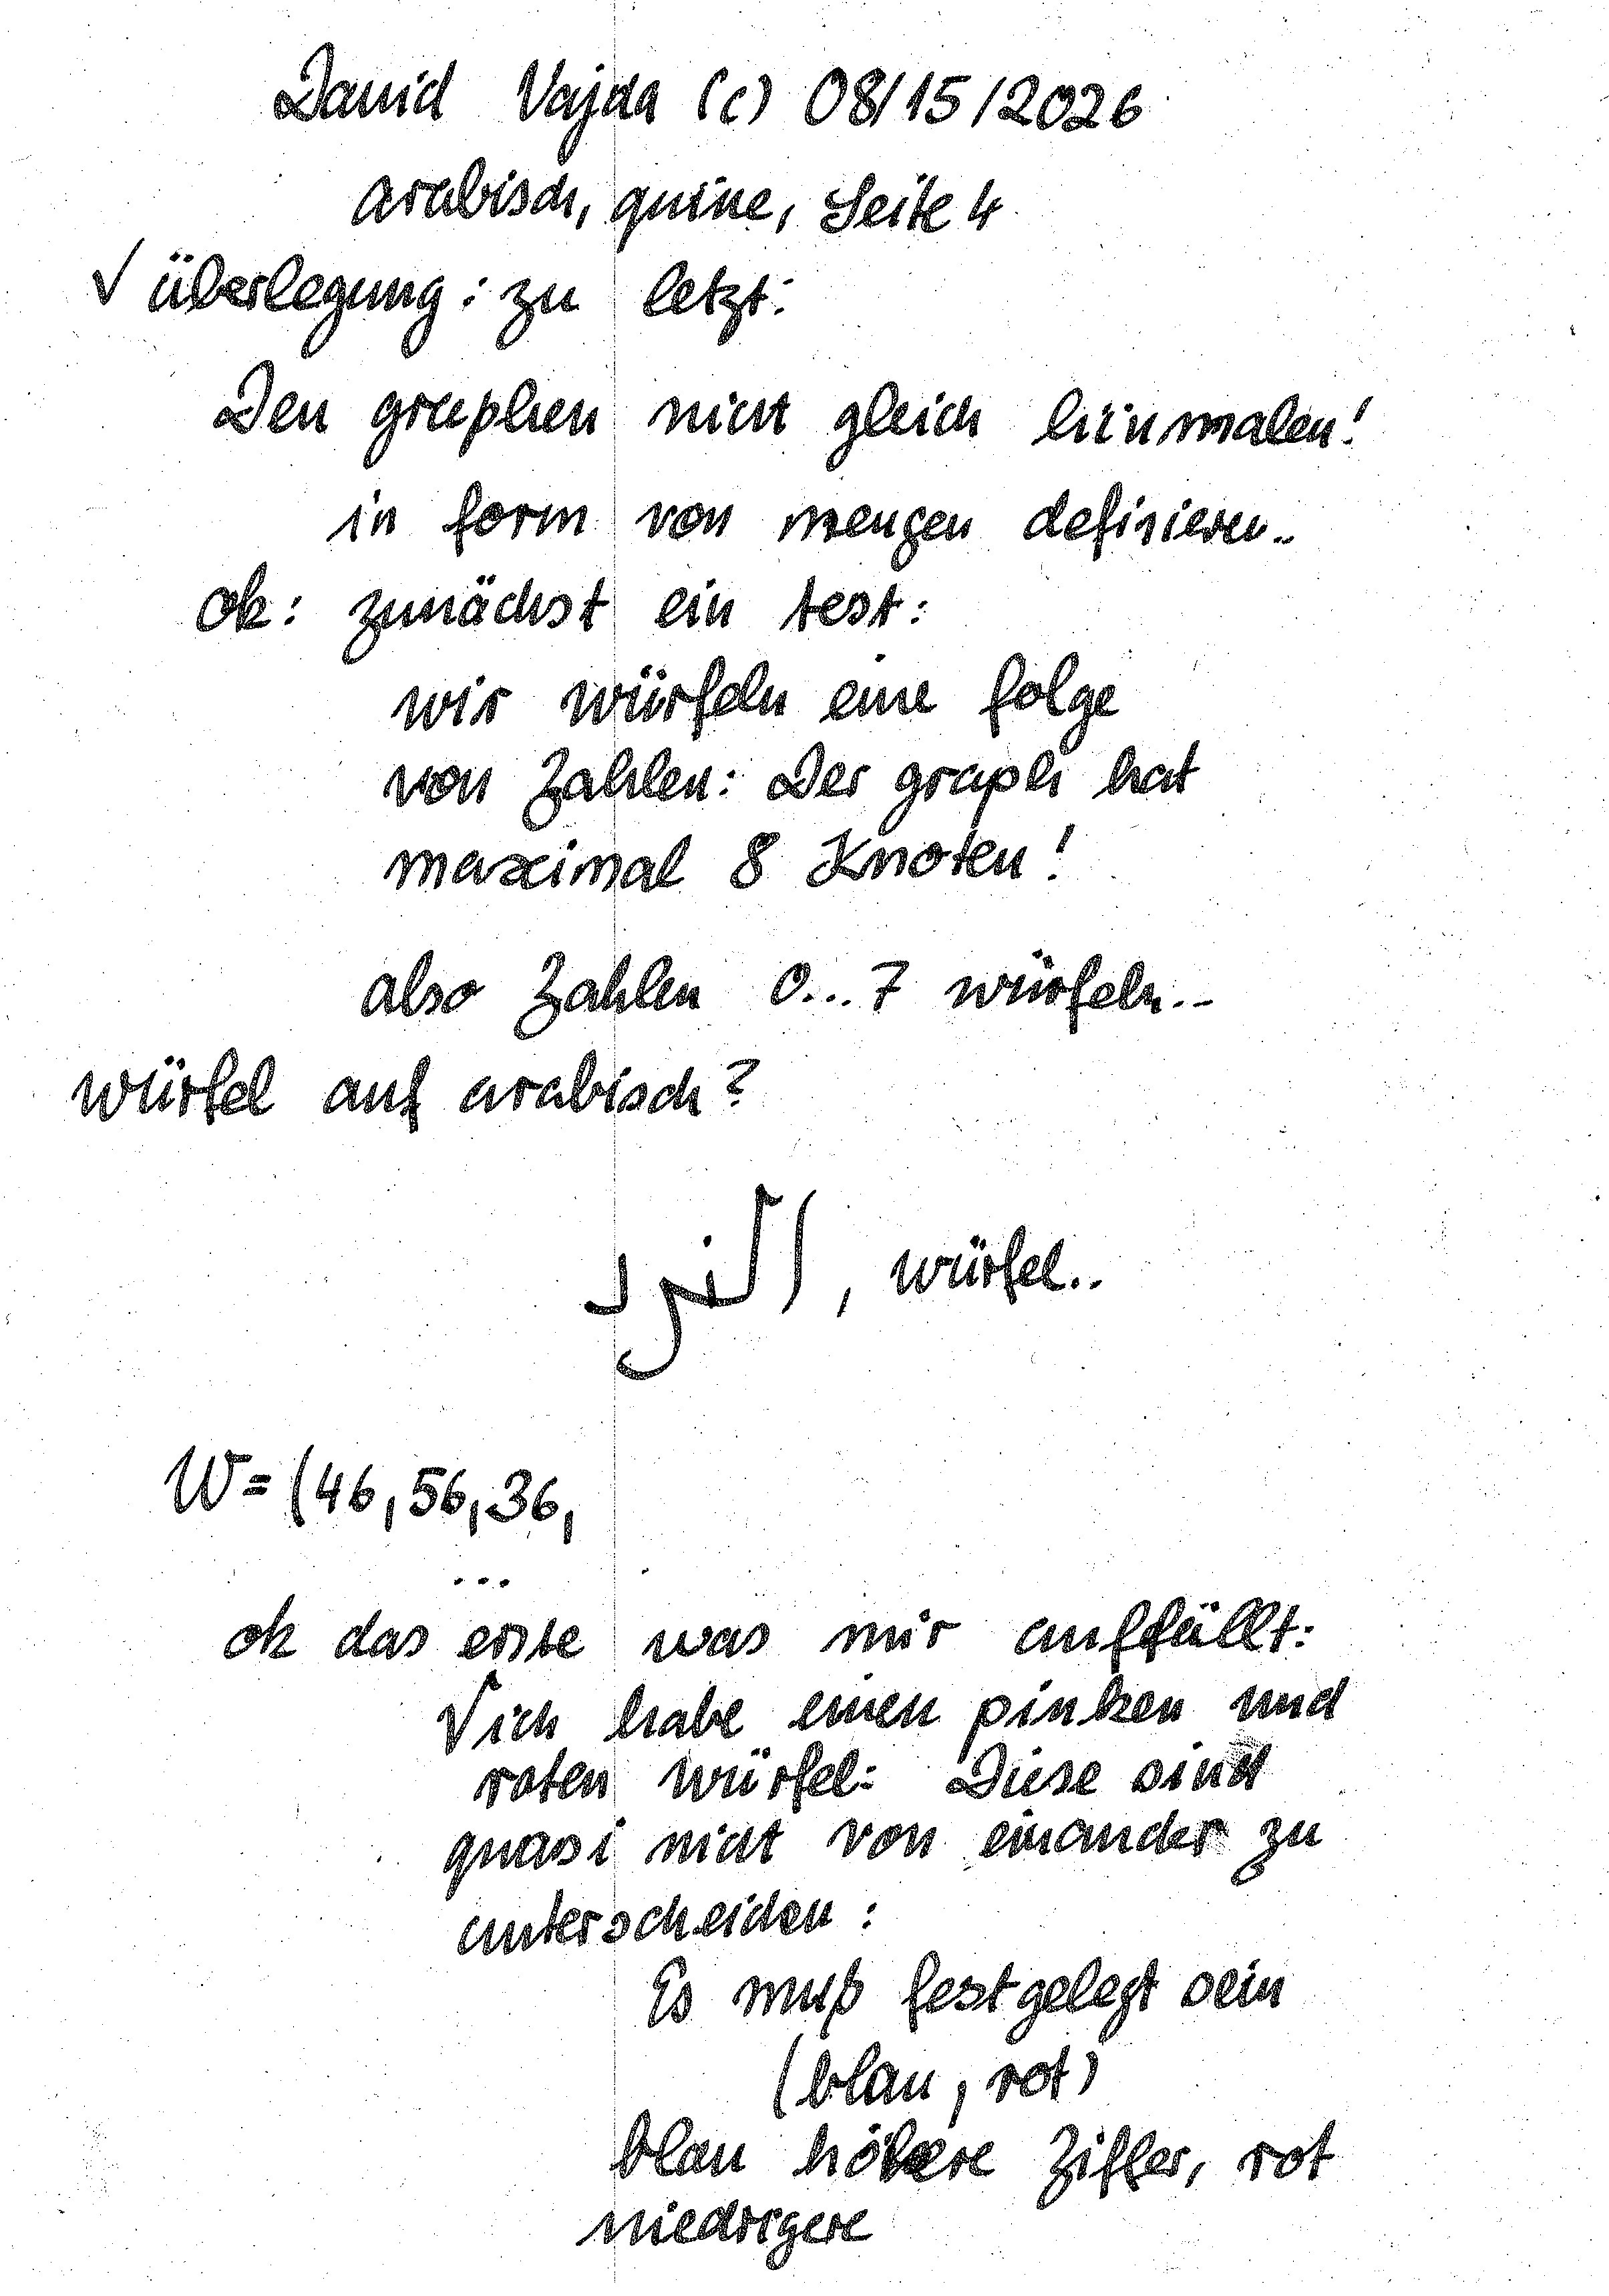 David Vajda (c) 08/15/2026
arabisch, quine, Seite 4
√ überlegung: zu letzt:
Den graphen nicht gleich hinmalen!
in form von mengen definieren..
ok: zunächst ein test:
wir würfeln eine folge
von Zahlen: Der graph hat
maximal 8 Knoten!
also Zahlen 0...7 würfeln...
würfel auf arabisch?
النرد, würfel..
W=(46,56,36,
...
ok das erste was mir auffällt:
√ich habe einen pinken und
roten würfel: Diese sind
quasi nicht von einander zu
unterscheiden:
Es muß festgelegt sein
(blau, rot)
blau höhere Ziffer, rot
niedrigere